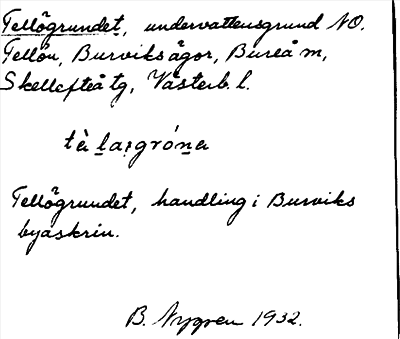 Tellögrundet, undervattensgrund NO.
Tellön, Burviks ägor, Bureå m,
Skellefteå tg, Västerb. l.
tè la̤grón̲a
Tellögrundet, handling i Burviks
byaskrin.
B. Nygren 1932.